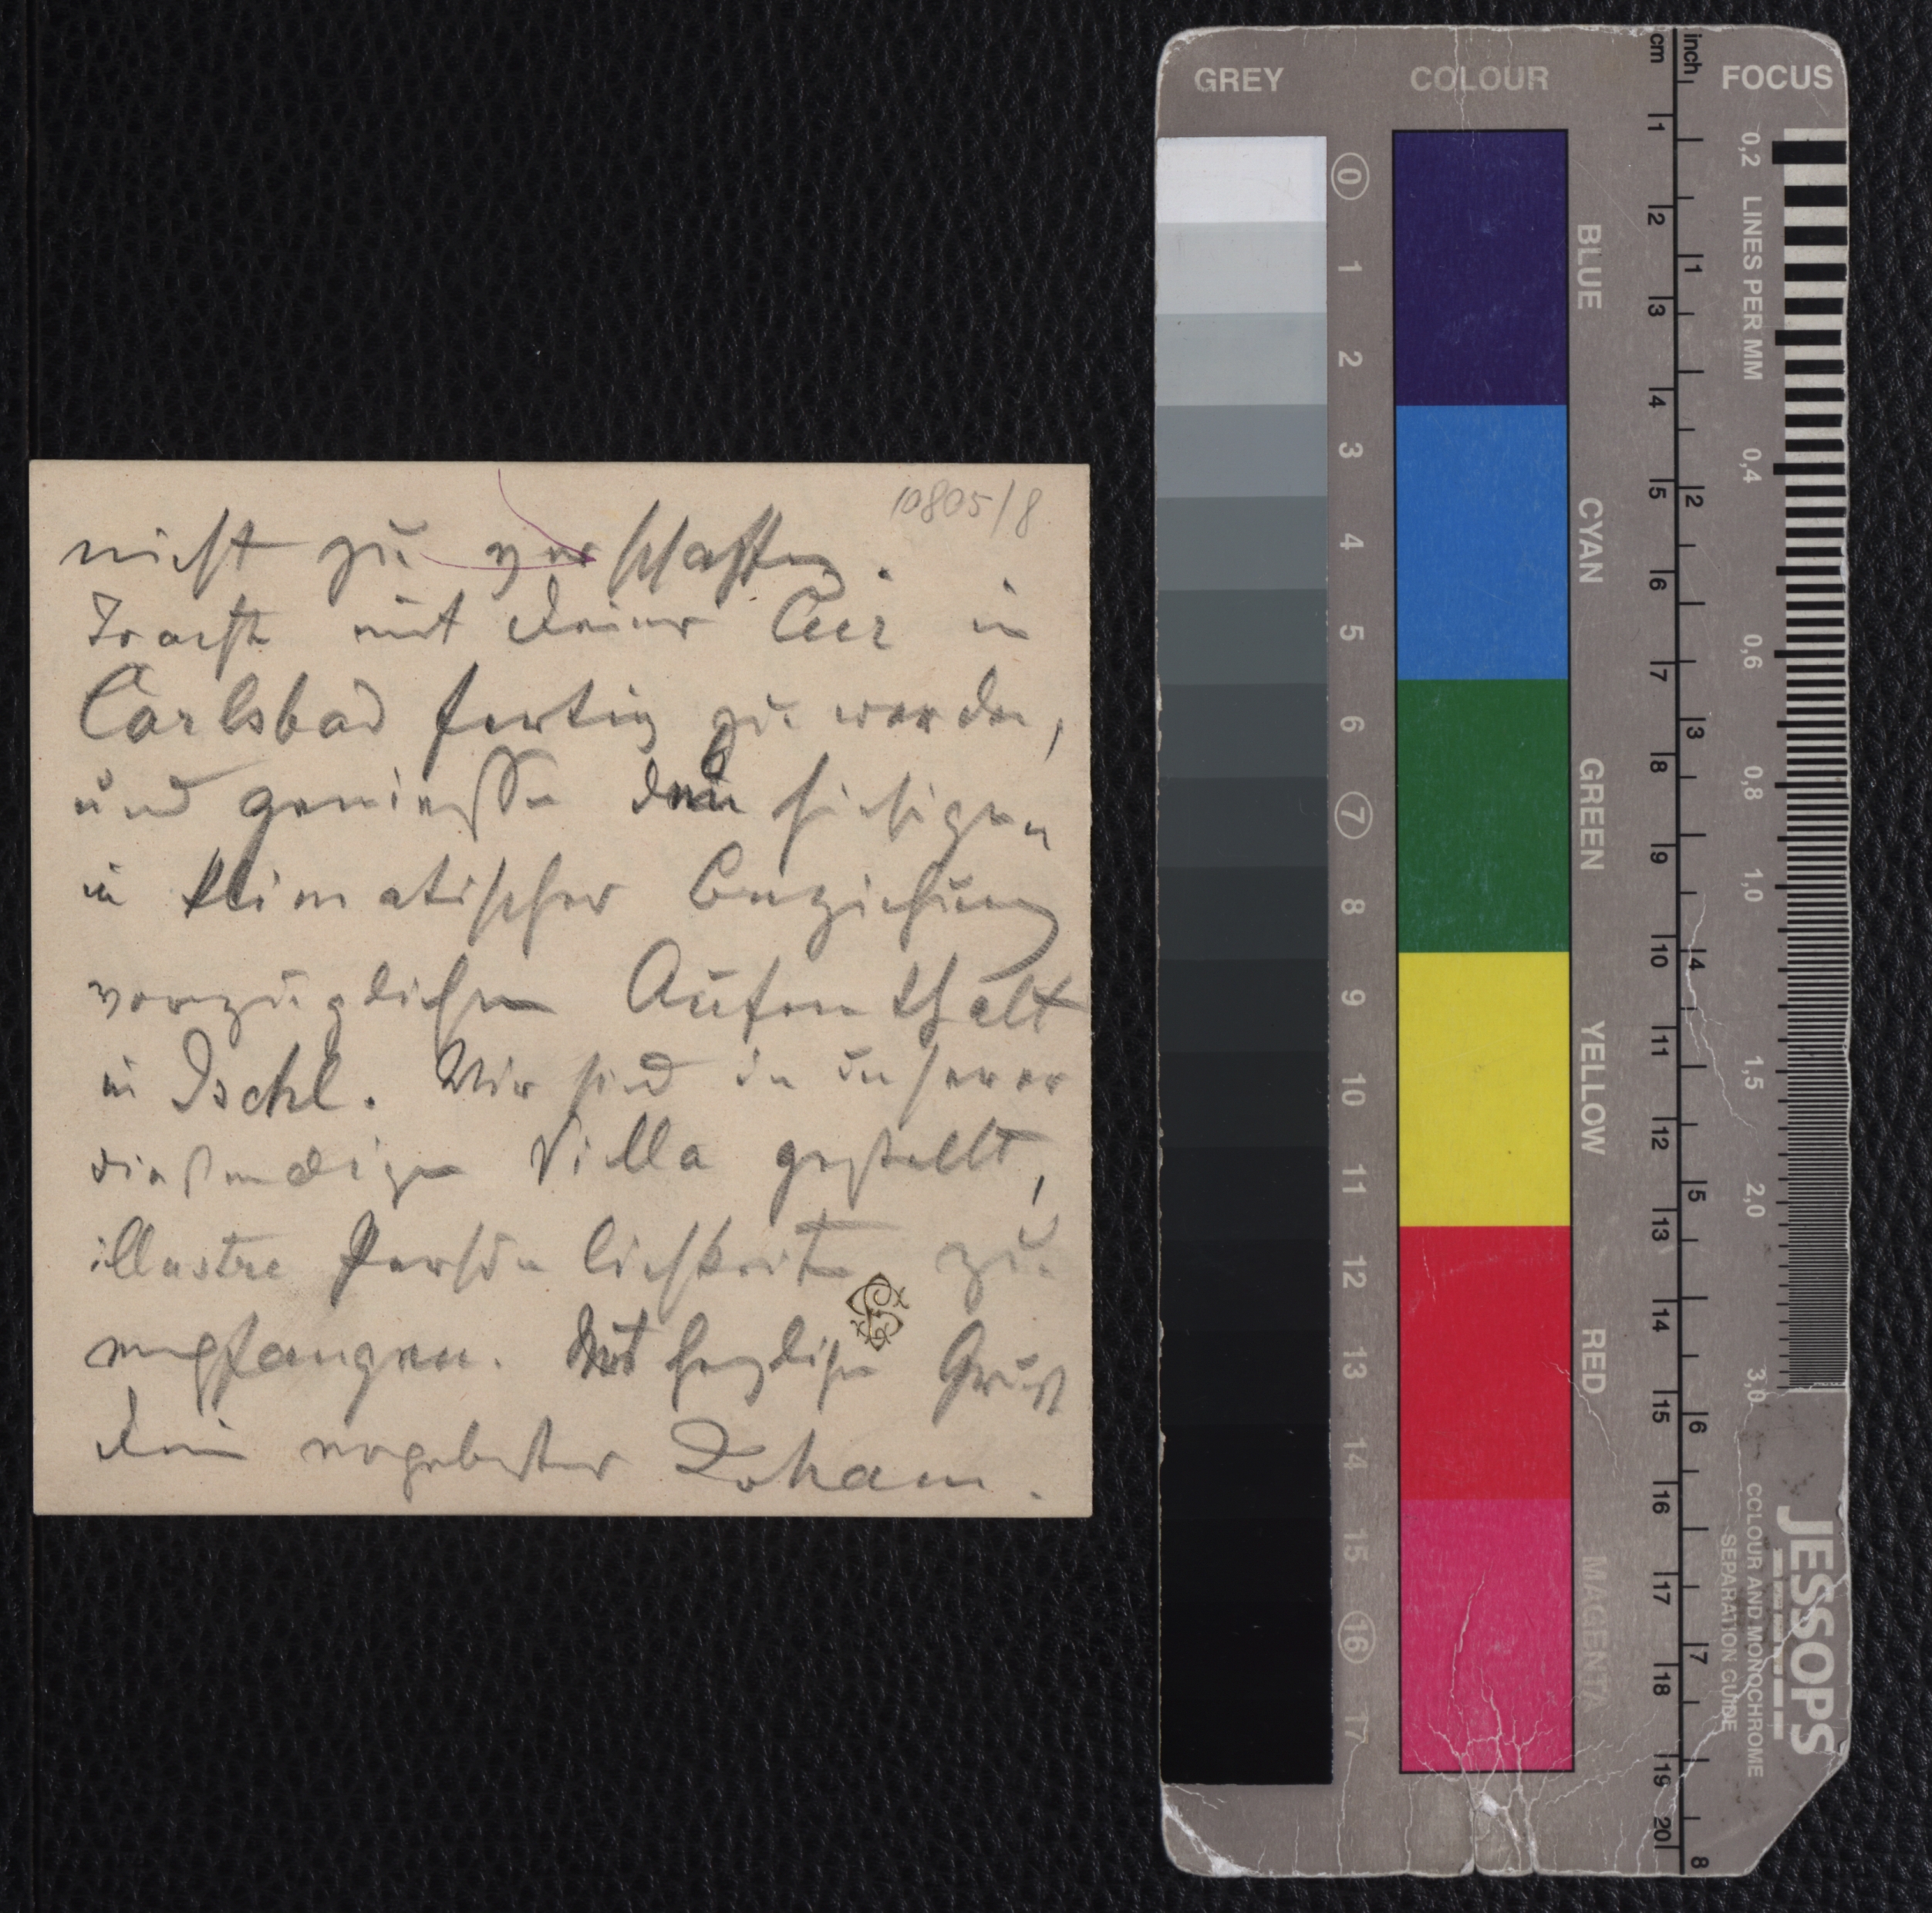 10805/8
nicht zu verschaffen.
Tracht mit Deiner Cur in
Carlsbad fertig zu werden,
und geniesse den hiesigen
in klimatischer Beziehung
vorzüglichen Aufenthalt
in Ischl. Wir sind in unserer
Villa gestellt,
illustre Persönlichkeiten zu
empfangen. Mit herzlichen Gruß
Dein ergebenster Johann.
GREY COLOUR FOCUS
cm inch
0 1 2 3 4 5 6 7 8 9 10 11 12 13 14 15 16 17
BLUE
CYAN
GREEN
YELLOW
RED
MAGENTA
1 2 3 4 5 6 7 8 9 10 11 12 13 14 15 16 17 18 19 20
1 2 3 4 5 6 7 8
0,2 LINES PER MM 0,4 0,6 0,8 1,0 1,5 2,0 3,0
JESSOPS
COLOUR AND MONOCHROME
SEPARATION GUIDE